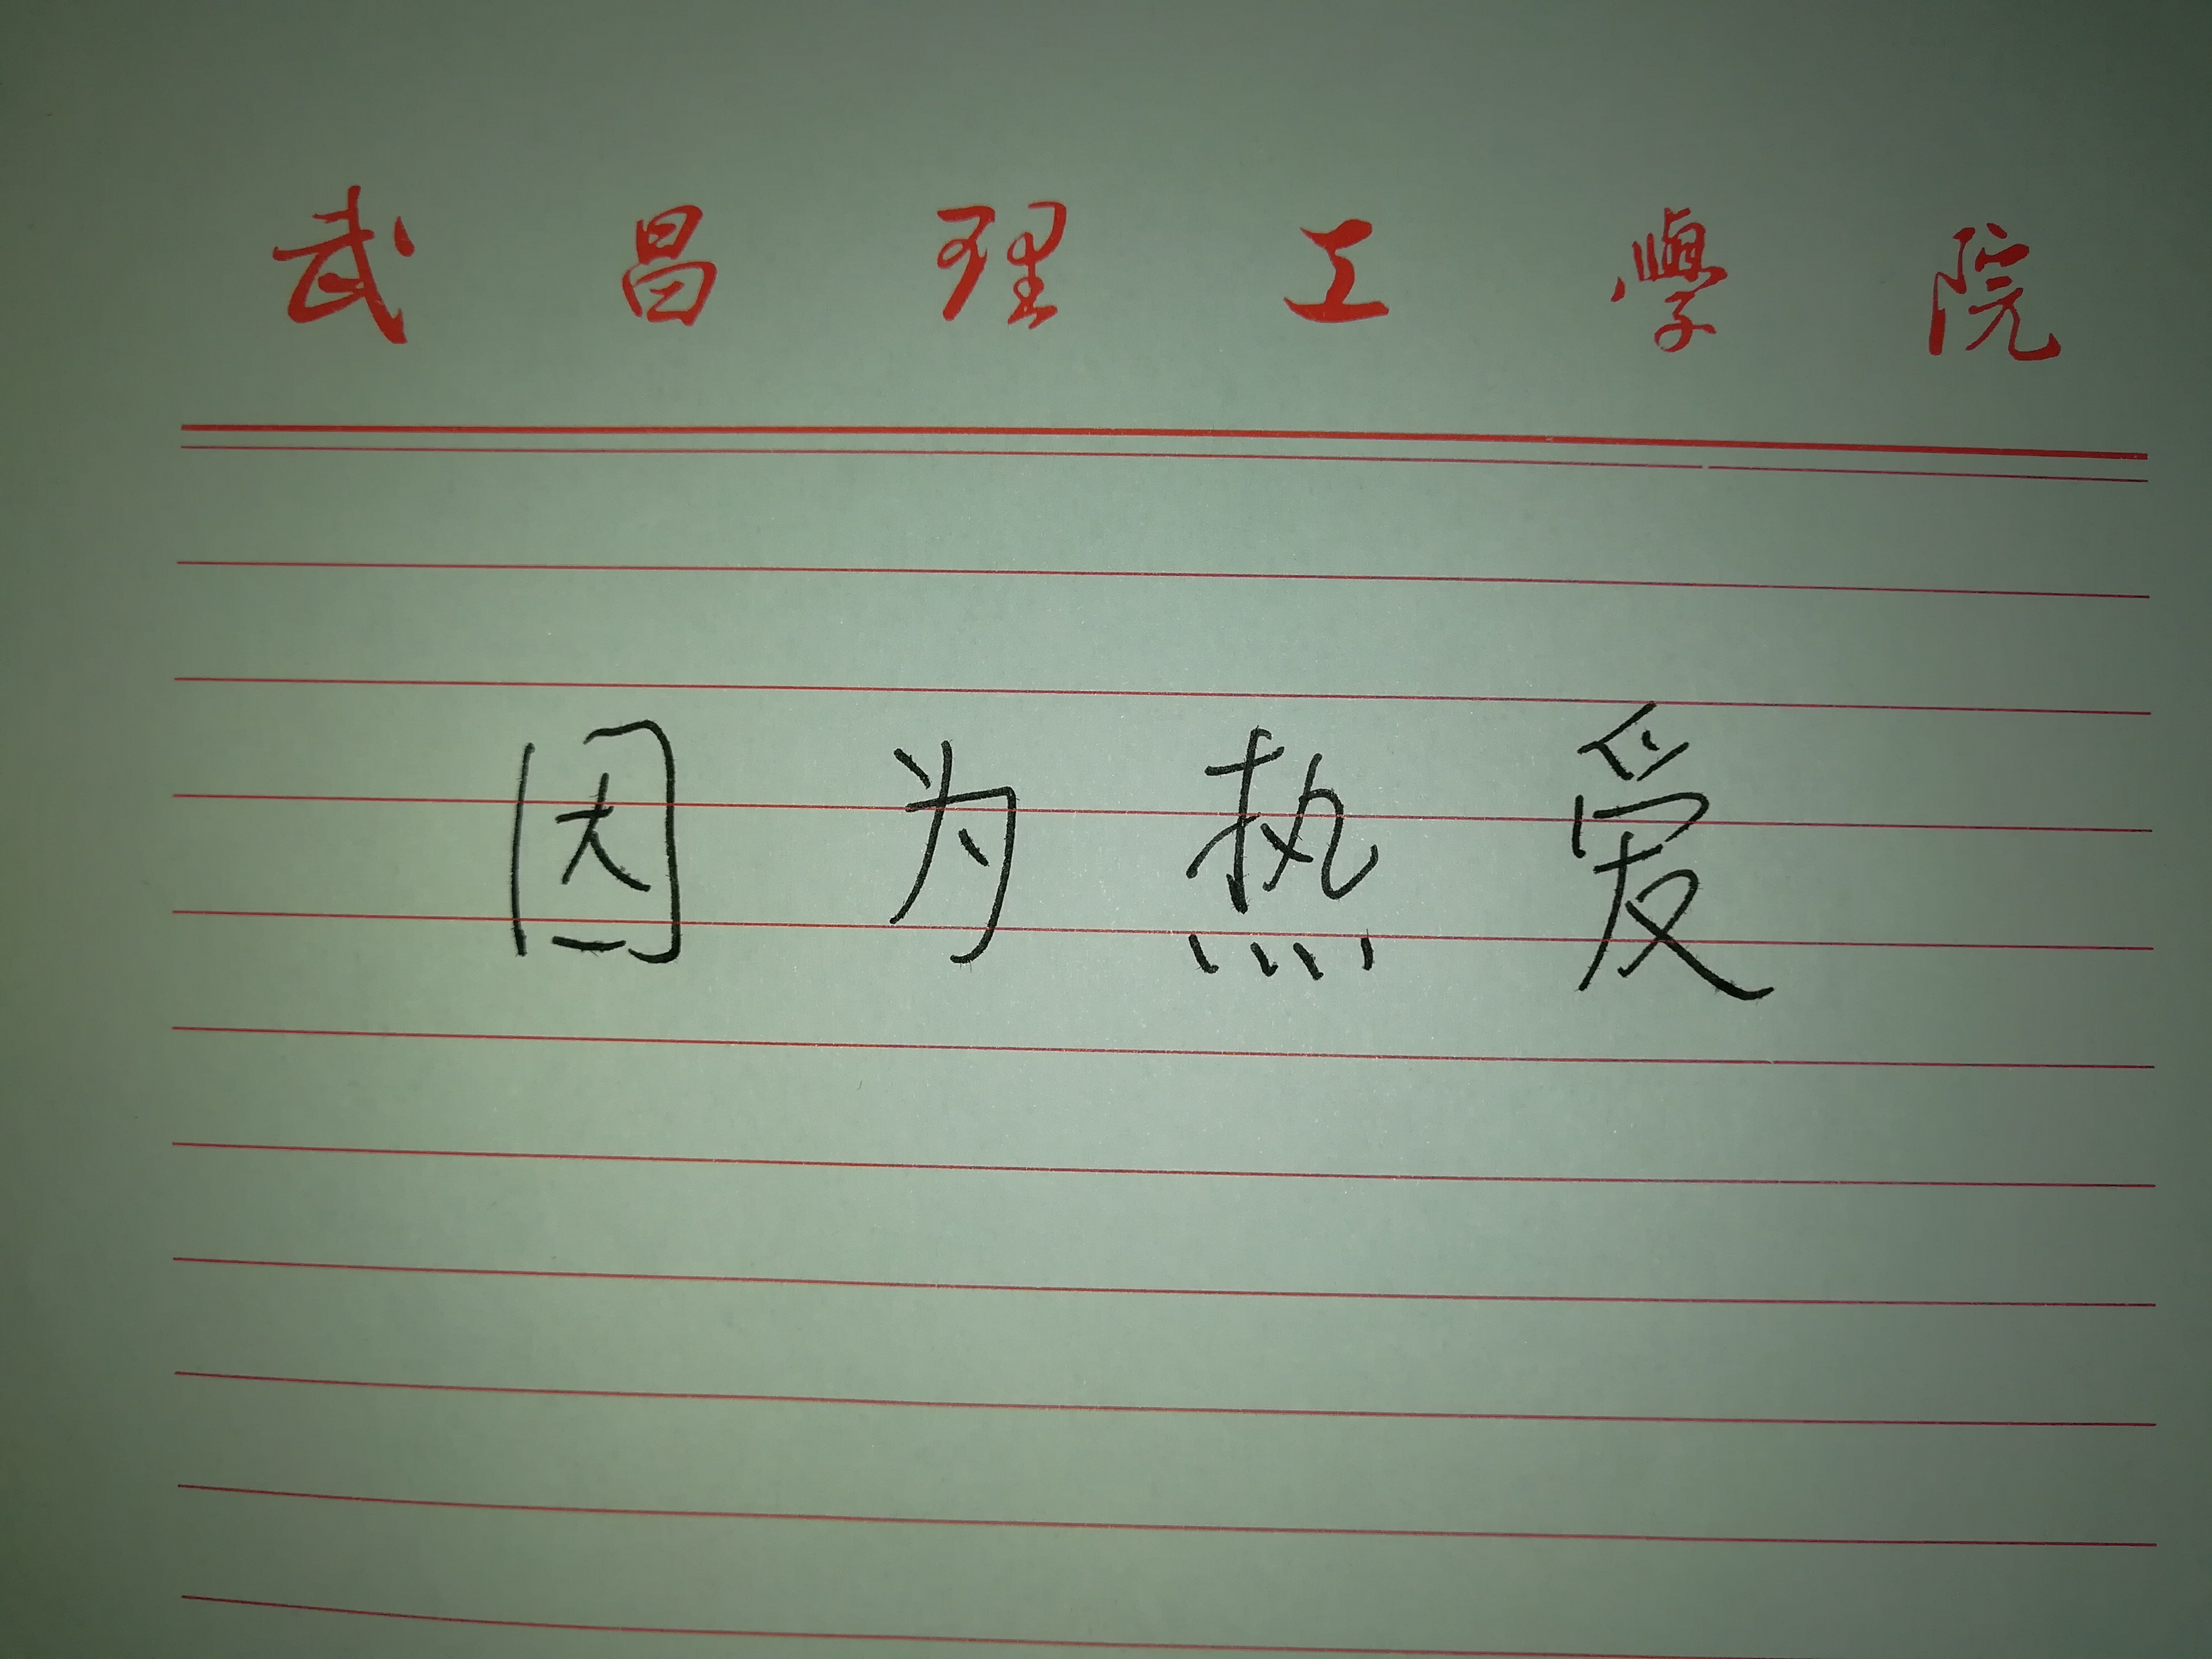 武昌理工學院
因为热爱